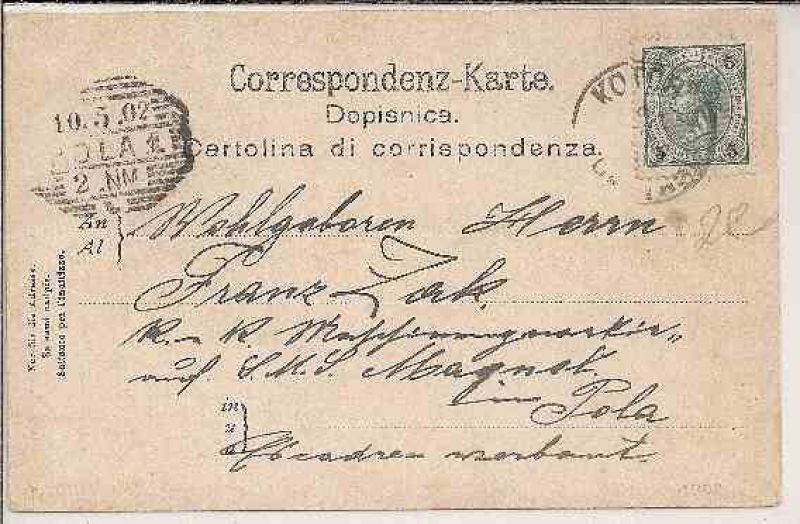 Correspondenz-Karte.
Dopisnica.
Cartolina di corrispondenza.
10.5.02
POLA
2.NM
KO
5 5
5 5
Zn
Al
Wohlgeboren Herrn
Franz Zak
K. K.
auf S.M.S. Magnet
in Pola
in
u
a
Escadre verbant.
28
Nur für die Adresse.
Sa samu naslov.
Soltanto per l'indirizzo.